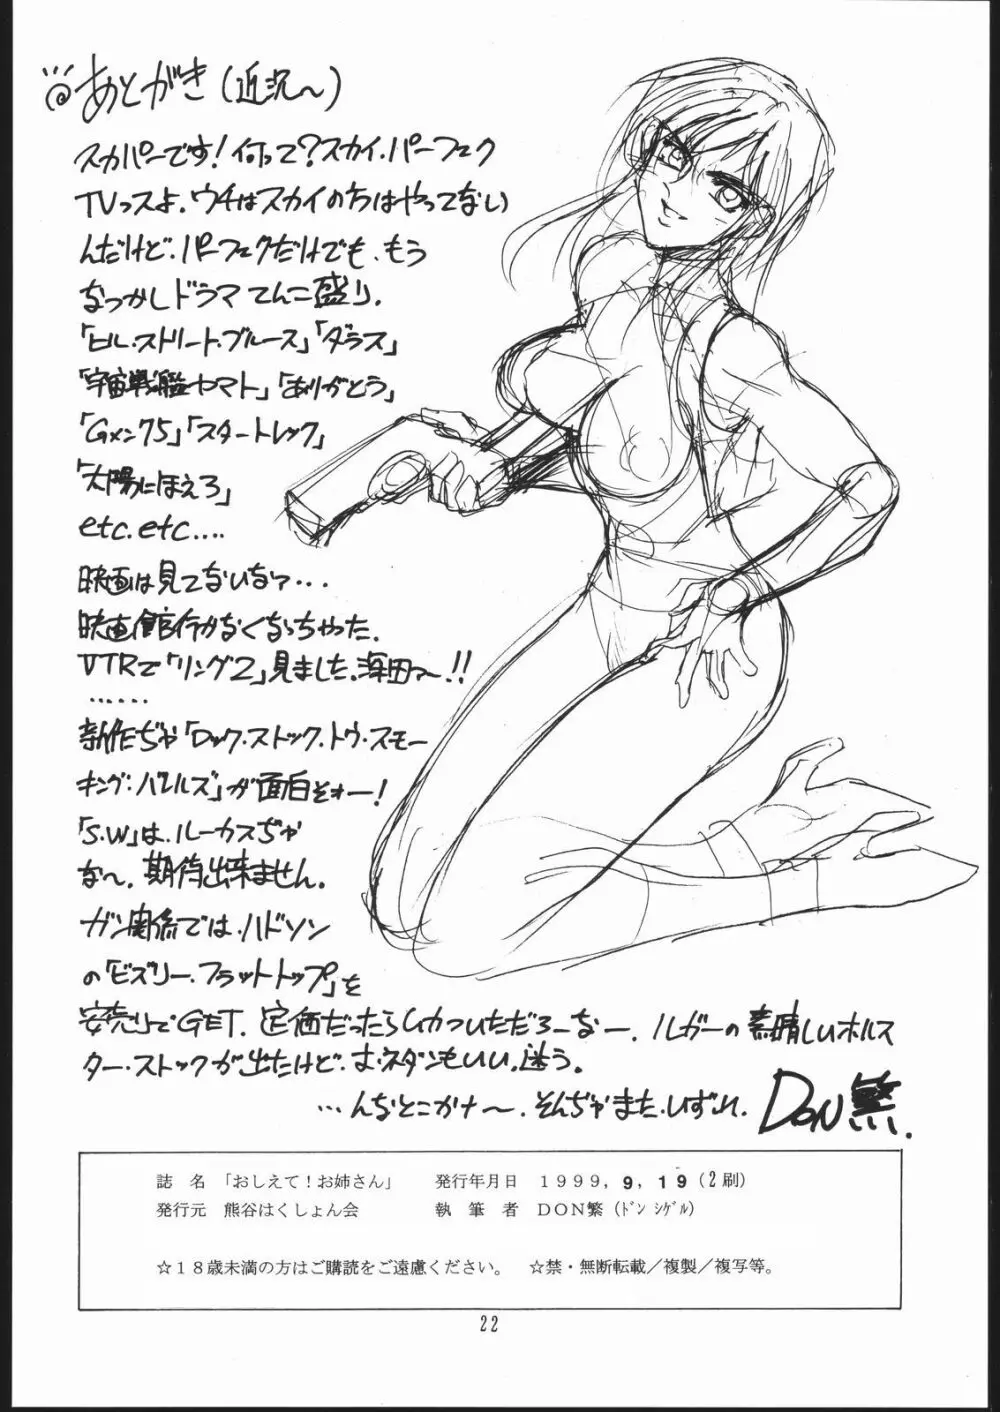 あとがき(近況〜)
スカパーです!何って?スカイ.パーフェク
TVっスよ.ウチはスカイの方はやってない
んだけど.パーフェクだけでも、もう
なつかしドラマてんこ盛り.
「ヒル.ストリート.ブルース」「ダラス」
「宇宙戦艦ヤマト」「ありがとう」
「Gメン75」「スタートレック」
「太陽にほえろ」
etc.etc....
映画は見てないなァ...
映画館行かなくなっちゃった.
VTRで「リング2」見ました.
......
新作ぢゃ「ロック.ストック.トゥ.スモー
キング.バレルズ」が面白そォー!
「S.W」は、ルーカスぢゃ
な〜.期待出来ません.
ガン関係では.ハドソン
の「ビズリー.フラットトップ」を
安売りでGET.定価だったらムカついただろーなー.ルガーの素晴しいホルス
ター.ストックが出たけど、おネダンもいい.迷う.
...んなとこかナ〜.そんぢゃまた.いずれ.
DON繁.
誌 名 「おしえて!お姉さん」 発行年月日 1999, 9, 19(2刷)
発行元 熊谷はくしょん会 執筆者 DON繁(ﾄﾞﾝ ｼｹﾞﾙ)
☆18歳未満の方はご購読をご遠慮ください。 ☆禁・無断転載／複製／複写等。
22